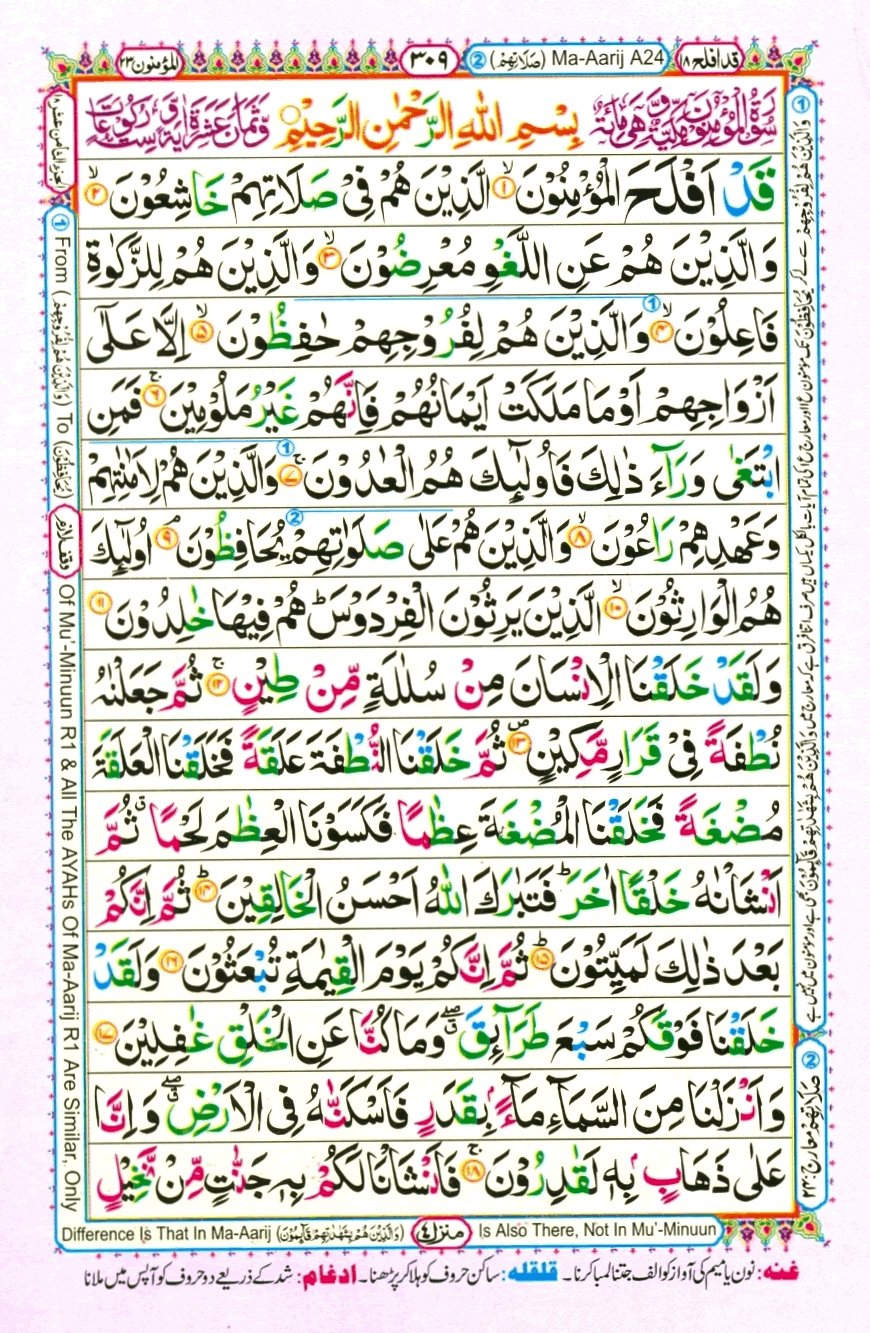 قد افلح ١٨
Ma-Aarij A24 (صَلَاتِهِمْ) ②
٣٠٩
المؤمنون ٢٣
سُوْرَةُ الْمُؤْمِنُوْنَ مَكِّيَّةٌ وَّهِيَ مِائَةٌ
بِسْمِ اللّٰهِ الرَّحْمٰنِ الرَّحِيْمِ
وَّثَمَانَ عَشْرَةَ اٰيَةً وَّسِتُّ رُكُوْعَاتٍ
قَدْ اَفْلَحَ الْمُؤْمِنُوْنَ ۙ﴿۱﴾ الَّذِيْنَ هُمْ فِيْ صَلَاتِهِمْ خَاشِعُوْنَ ۙ﴿۲﴾
وَالَّذِيْنَ هُمْ عَنِ اللَّغْوِ مُعْرِضُوْنَ ۙ﴿۳﴾ وَالَّذِيْنَ هُمْ لِلزَّكٰوةِ
فَاعِلُوْنَ ۙ﴿۴﴾ ① وَالَّذِيْنَ هُمْ لِفُرُوْجِهِمْ حٰفِظُوْنَ ۙ﴿۵﴾ اِلَّا عَلٰٓى
اَزْوَاجِهِمْ اَوْ مَا مَلَكَتْ اَيْمَانُهُمْ فَاِنَّهُمْ غَيْرُ مَلُوْمِيْنَ ۚ﴿۶﴾ فَمَنِ
ابْتَغٰى وَرَآءَ ذٰلِكَ فَاُولٰٓئِكَ هُمُ الْعٰدُوْنَ ۚ﴿۷﴾ ① وَالَّذِيْنَ هُمْ لِاَمٰنٰتِهِمْ
وَعَهْدِهِمْ رَاعُوْنَ ۙ﴿۸﴾ ② وَالَّذِيْنَ هُمْ عَلٰى صَلَوٰتِهِمْ يُحَافِظُوْنَ ۘ﴿۹﴾ اُولٰٓئِكَ
هُمُ الْوَارِثُوْنَ ۙ﴿۱۰﴾ الَّذِيْنَ يَرِثُوْنَ الْفِرْدَوْسَ ؕ هُمْ فِيْهَا خٰلِدُوْنَ ﴿۱۱﴾
وَلَقَدْ خَلَقْنَا الْاِنْسَانَ مِنْ سُلٰلَةٍ مِّنْ طِيْنٍ ۚ﴿۱۲﴾ ثُمَّ جَعَلْنٰهُ
نُطْفَةً فِيْ قَرَارٍ مَّكِيْنٍ ۪﴿۱۳﴾ ثُمَّ خَلَقْنَا النُّطْفَةَ عَلَقَةً فَخَلَقْنَا الْعَلَقَةَ
مُضْغَةً فَخَلَقْنَا الْمُضْغَةَ عِظٰمًا فَكَسَوْنَا الْعِظٰمَ لَحْمًا ۗ ثُمَّ
اَنْشَاْنٰهُ خَلْقًا اٰخَرَ ؕ فَتَبٰرَكَ اللّٰهُ اَحْسَنُ الْخَالِقِيْنَ ؕ﴿۱۴﴾ ثُمَّ اِنَّكُمْ
بَعْدَ ذٰلِكَ لَمَيِّتُوْنَ ؕ﴿۱۵﴾ ثُمَّ اِنَّكُمْ يَوْمَ الْقِيٰمَةِ تُبْعَثُوْنَ ﴿۱۶﴾ وَلَقَدْ
خَلَقْنَا فَوْقَكُمْ سَبْعَ طَرَآئِقَ ۖ وَمَا كُنَّا عَنِ الْخَلْقِ غٰفِلِيْنَ ﴿۱۷﴾
وَاَنْزَلْنَا مِنَ السَّمَآءِ مَآءًۢ بِقَدَرٍ فَاَسْكَنّٰهُ فِي الْاَرْضِ ۖ وَاِنَّا
عَلٰى ذَهَابٍۢ بِهٖ لَقٰدِرُوْنَ ۚ﴿۱۸﴾ فَاَنْشَاْنَا لَكُمْ بِهٖ جَنّٰتٍ مِّنْ نَّخِيْلٍ
② صَلَاتِهِمْ معارج: ٢٣
الجزء الثامن عشر ١٨
① From (وَالَّذِيْنَ هُمْ لِفُرُوْجِهِمْ) To (يُحَافِظُوْنَ)
وقف لازم
Of Mu'-Minuun R1 & All The AYAHs Of Ma-Aarij R1 Are Similar, Only
Difference Is That In Ma-Aarij (وَالَّذِيْنَ هُمْ بِشَهٰدٰتِهِمْ قَآئِمُوْنَ)
منزل ٤
Is Also There, Not In Mu'-Minuun
غنه: نون یا میم کی آواز کو الف جتنا لمبا کرنا۔ قلقله: ساکن حروف کو ہلا کر پڑھنا۔ ادغام: شد کے ذریعے دو حروف کو آپس میں ملانا